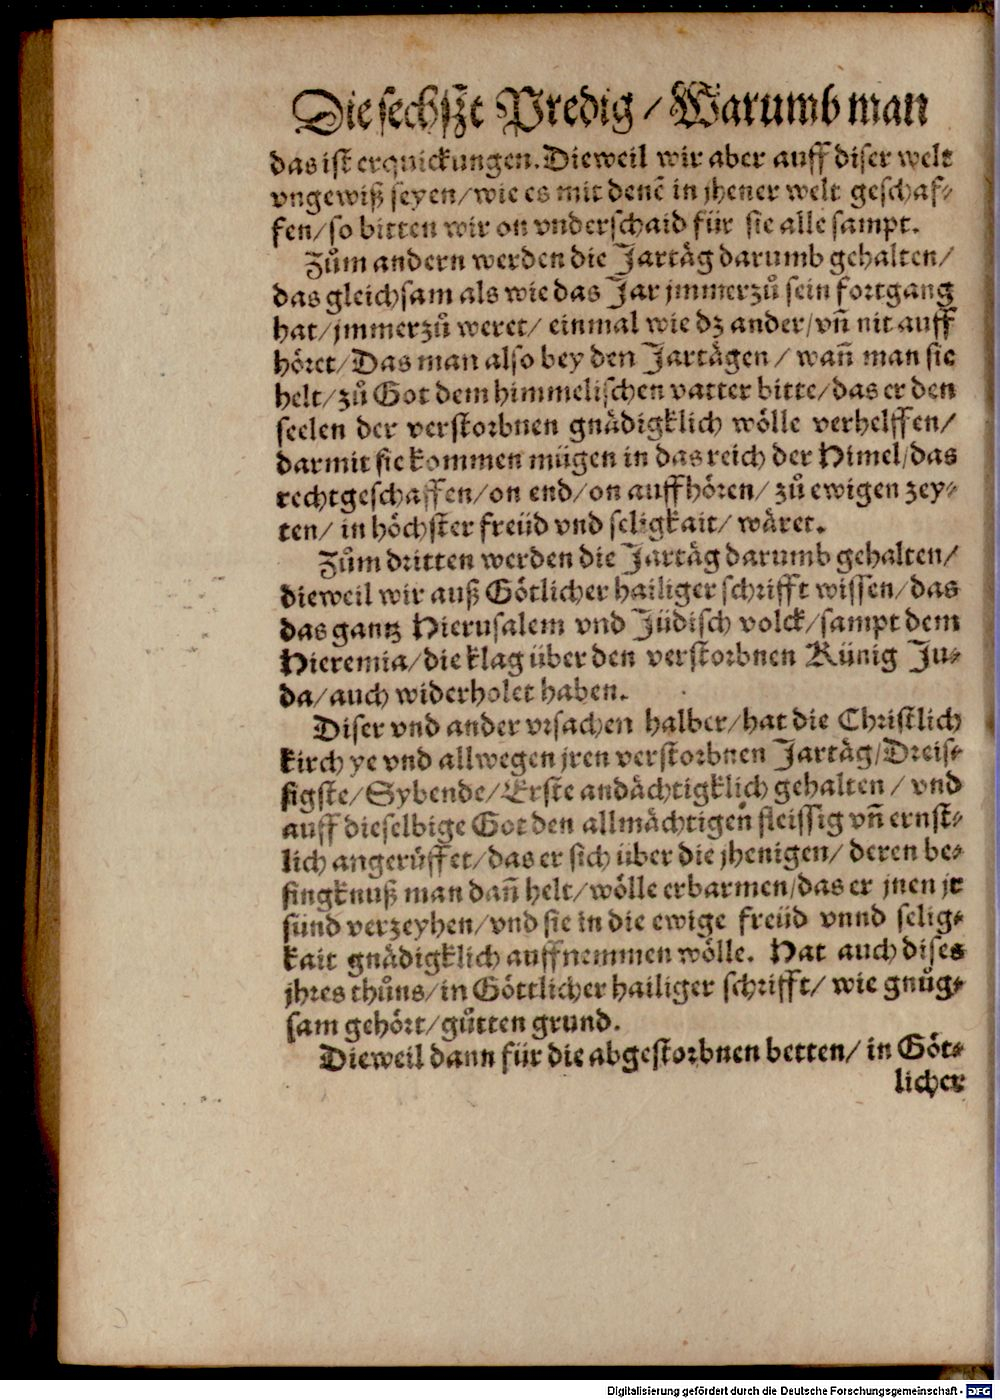 Die sechszt Predig / Warumb man
das ist erquickungen. Dieweil wir aber auff diser welt
vngewiß seyen/ wie es mit denē in jhener welt geschaf-
fen/ so bitten wir on vnderschaid für sie alle sampt.
Zům andern werden die Jartäg darumb gehalten/
das gleichsam als wie das Jar jmmerzů sein fortgang
hat/ jmmerzů weret/ einmal wie dz ander/ vñ nit auff
höret/ Das man also bey den Jartägen / wañ man sie
helt/ zů Got dem himmelischen vatter bitte/ das er den
seelen der verstorbnen gnädigklich wölle verhelffen/
darmit sie kommen mügen in das reich der Himel/ das
rechtgeschaffen/ on end/ on auffhören/ zů ewigen zey-
ten/ in höchster freüd vnd seligkait/ wäret.
Zům dritten werden die Jartäg darumb gehalten/
dieweil wir auß Götlicher hailiger schrifft wissen/ das
das gantz Hierusalem vnd Jüdisch volck/ sampt dem
Hieremia/ die klag über den verstorbnen Künig Ju-
da/ auch widerholet haben.
Diser vnd ander vrsachen halber/ hat die Christlich
kirch ye vnd allwegen jren verstorbnen Jartäg/ Dreis-
sigste/ Sybende/ Erste andächtigklich gehalten / vnd
auff dieselbige Got den allmächtigen fleissig vñ ernst-
lich angerůffet/ das er sich über die jhenigen/ deren be-
singknuß man dañ helt/ wölle erbarmen/ das er jnen jr
sünd verzeyhen/ vnd sie in die ewige freüd vnnd selig-
kait gnädigklich auffnemmen wölle. Hat auch dises
jhres thůns/ in Göttlicher hailiger schrifft/ wie gnůg-
sam gehört/ gůtten grund.
Dieweil dann für die abgestorbnen betten/ in Göt-
licher
Digitalisierung gefördert durch die Deutsche Forschungsgemeinschaft - DFG